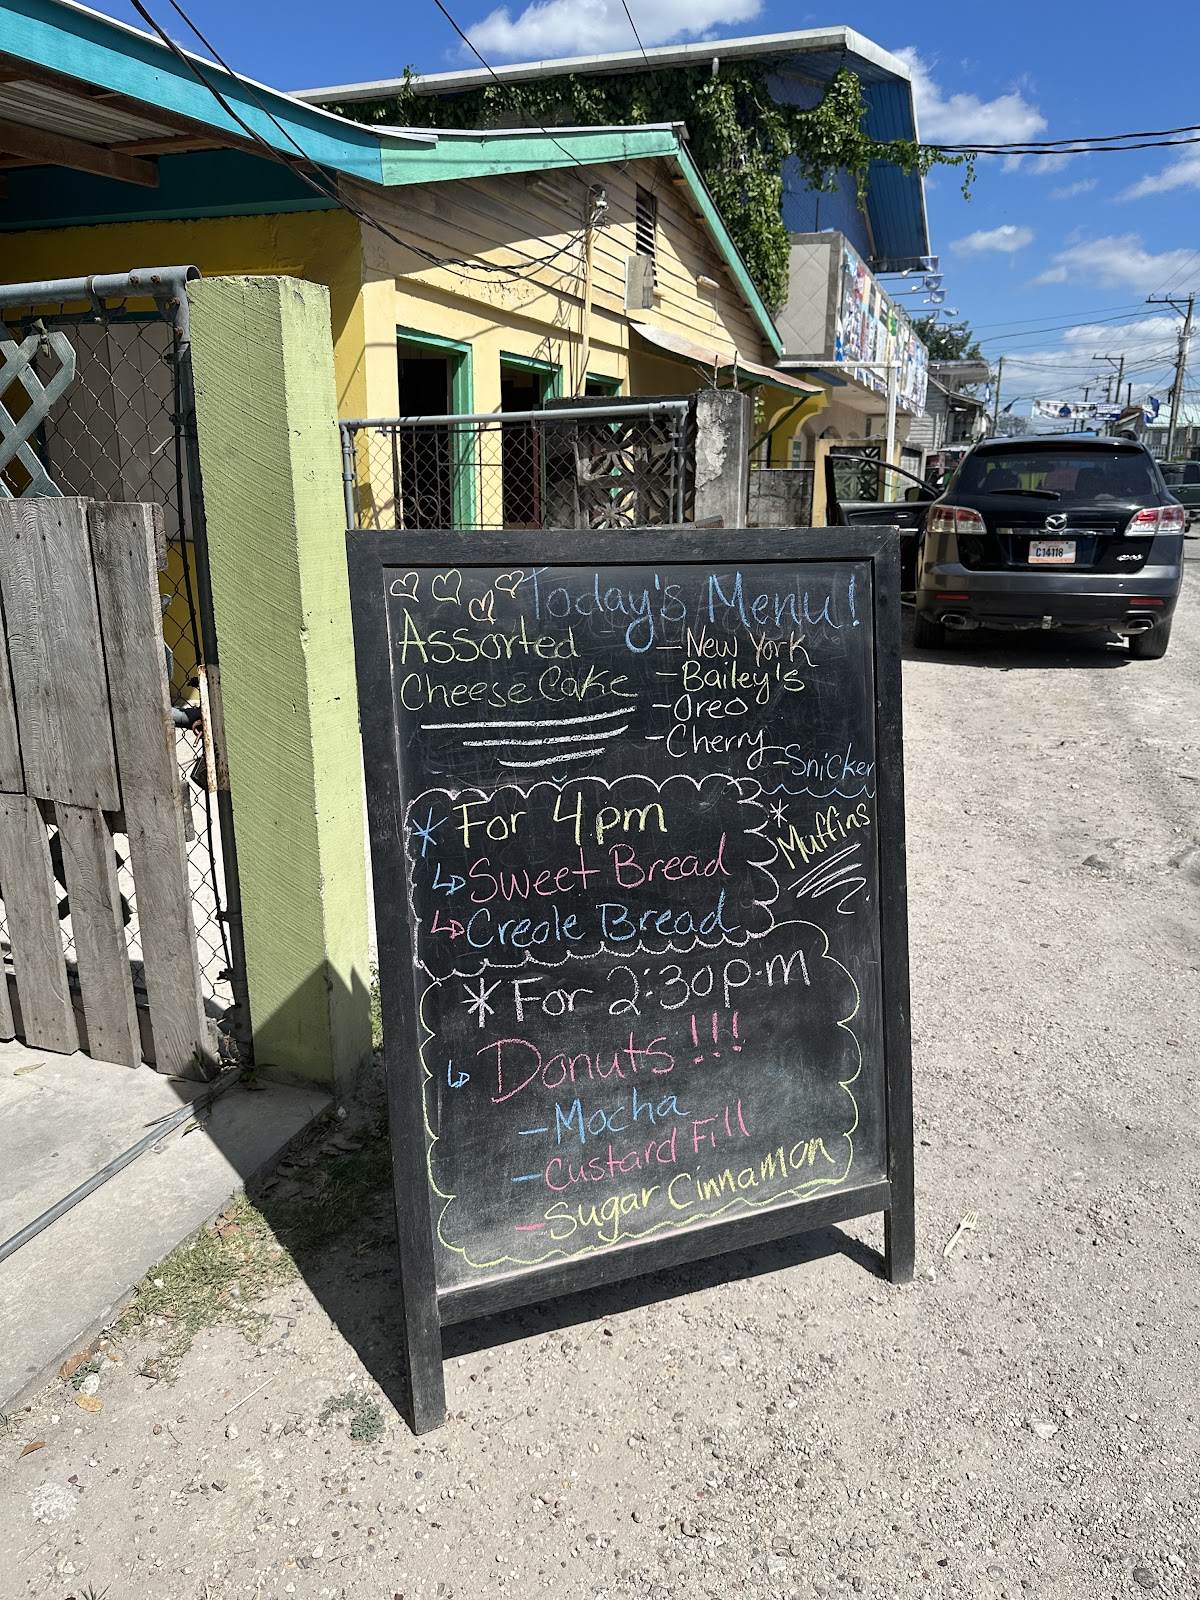 Today's Menu!
Assorted
Cheese Cake
- New York
- Bailey's
- Oreo
- Cherry
- Snicker
* For 4 pm
↳ Sweet Bread
↳ Creole Bread
* Muffins
* For 2:30 p.m
↳ Donuts!!!
- Mocha
- Custard Fill
- Sugar Cinnamon
C14118